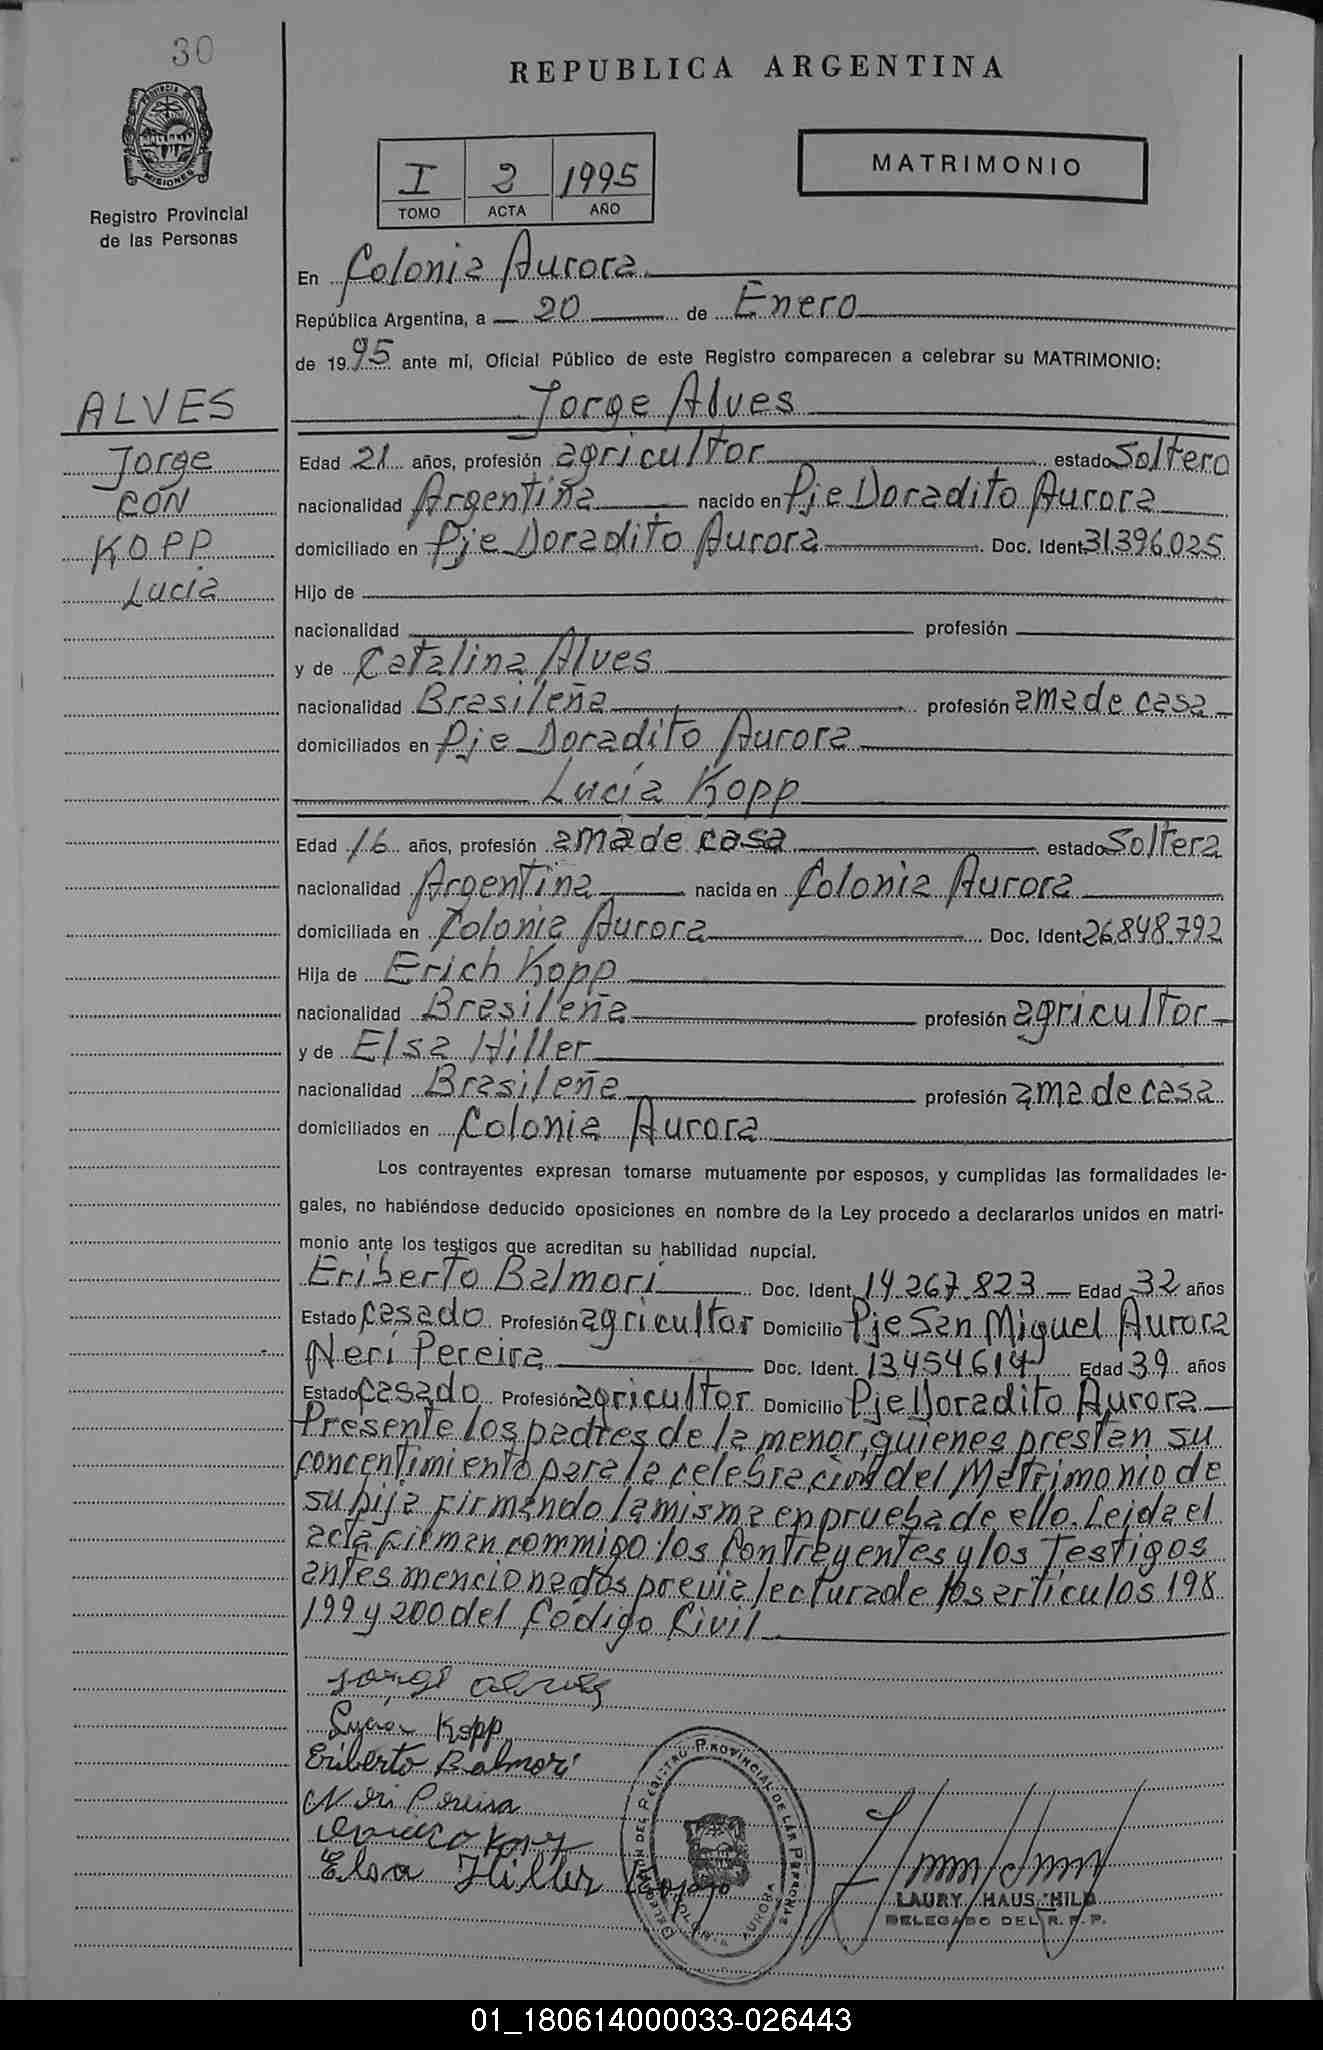 30
REPUBLICA ARGENTINA
PROVINCIA DE MISIONES
Registro Provincial
de las Personas
I 2 1995
TOMO ACTA AÑO
MATRIMONIO
En Colonia Aurora
República Argentina, a 20 de Enero
de 1995 ante mí, Oficial Público de este Registro comparecen a celebrar su MATRIMONIO:
ALVES
Jorge
CON
KOPP
Lucia
Jorge Alves
Edad 21 años, profesión agricultor estado Soltero
nacionalidad Argentiña nacido en Pje Doradito Aurora
domiciliado en Pje Doradito Aurora Doc. Ident 31.396.025
Hijo de
nacionalidad profesión
y de Catalina Alves
nacionalidad Brasileña profesión ama de casa
domiciliados en Pje Doradito Aurora
Lucía Kopp
Edad 16 años, profesión ama de casa estado Soltera
nacionalidad Argentina nacida en Colonia Aurora
domiciliada en Colonia Aurora Doc. Ident 26.848.792
Hija de Erich Kopp
nacionalidad Brasileña profesión agricultor
y de Elsa Hiller
nacionalidad Brasileña profesión ama de casa
domiciliados en Colonia Aurora
Los contrayentes expresan tomarse mutuamente por esposos, y cumplidas las formalidades le-
gales, no habiéndose deducido oposiciones en nombre de la Ley procedo a declararlos unidos en matri-
monio ante los testigos que acreditan su habilidad nupcial.
Eriberto Balmori Doc. Ident. 14.267.823 Edad 32 años
Estado casado Profesión agricultor Domicilio Pje San Miguel Aurora
Neri Pereira Doc. Ident. 13.454.614 Edad 39 años
Estado casado Profesión agricultor Domicilio Pje Doradito Aurora
Presente los padres de la menor, quienes prestan su
concentimiento para la celebración del Matrimonio de
su hija firmando la misma en prueba de ello. Leida el
acta firman commigo los Contreyentes y los Testigos
antes mencionados previa lectura de los articulos 198
199 y 200 del Código Civil
Jorge Alves
Lucia Kopp
Eriberto Balmori
Neri Pereira
Kopp
Elsa Hiller
DELEGACION DEL REGISTRO PROVINCIAL DE LAS PERSONAS
COLONIA AURORA
LAURY HAUS HILD
DELEGADO DEL R. P. P.
01_180614000033-026443